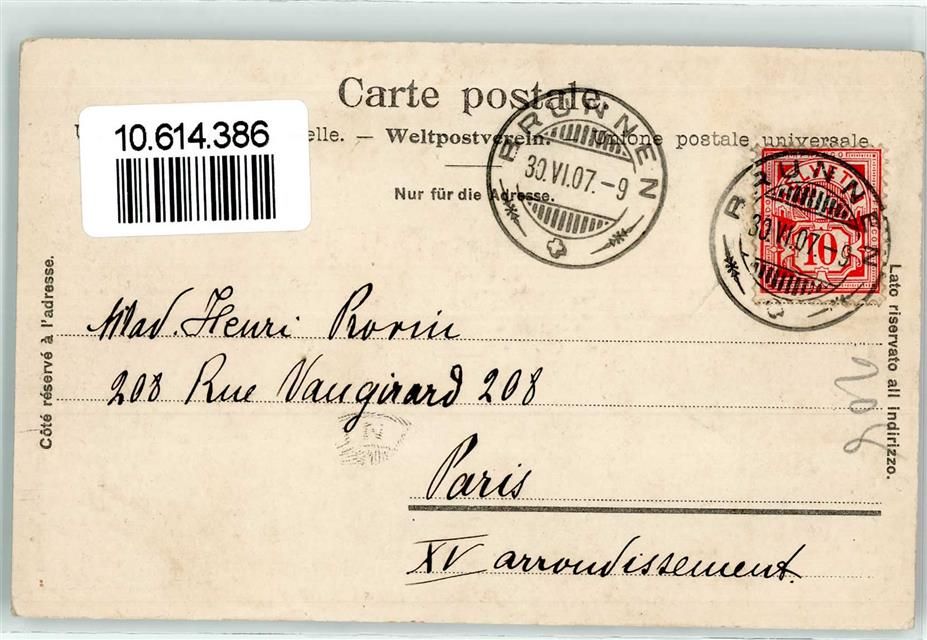 Carte postale.
10.614.386
elle. — Weltpostverein. — Unione postale universale.
Nur für die Adresse.
BRUNNEN
30.VI.07.-9
BRUNNEN
30.VI.07.-9
HELVETIA
10
Côté réservé à l'adresse.
Lato riservato all indirizzo.
Mad. Henri Rorin
208 Rue Vaugirard 208
Paris
XV arrondissement.